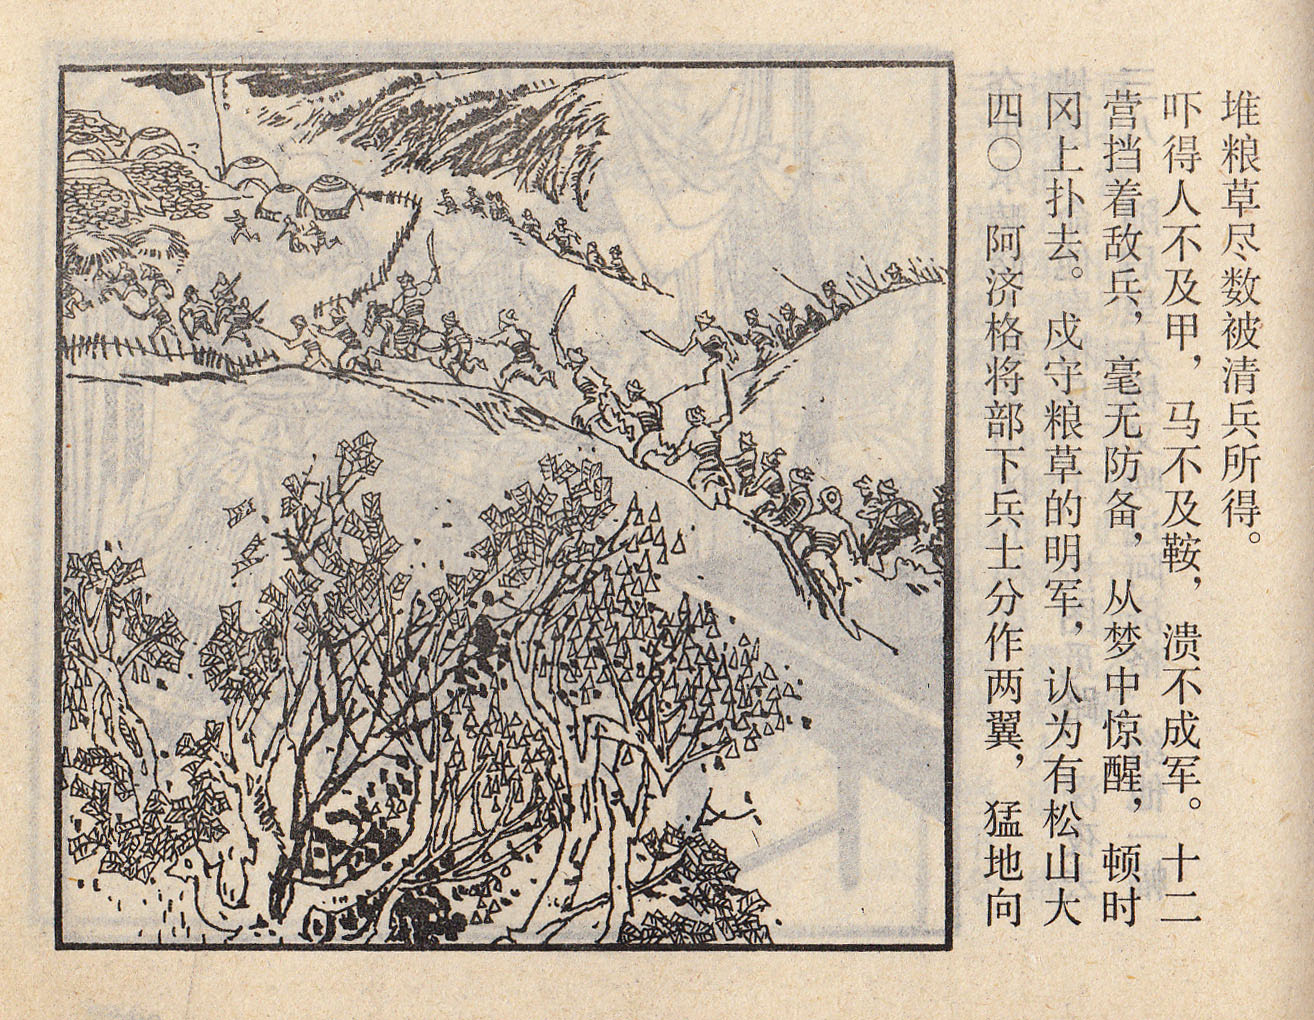 四〇 阿济格将部下兵士分作两翼，猛地向
冈上扑去。戍守粮草的明军，认为有松山大
营挡着敌兵，毫无防备，从梦中惊醒，顿时
吓得人不及甲，马不及鞍，溃不成军。十二
堆粮草尽数被清兵所得。